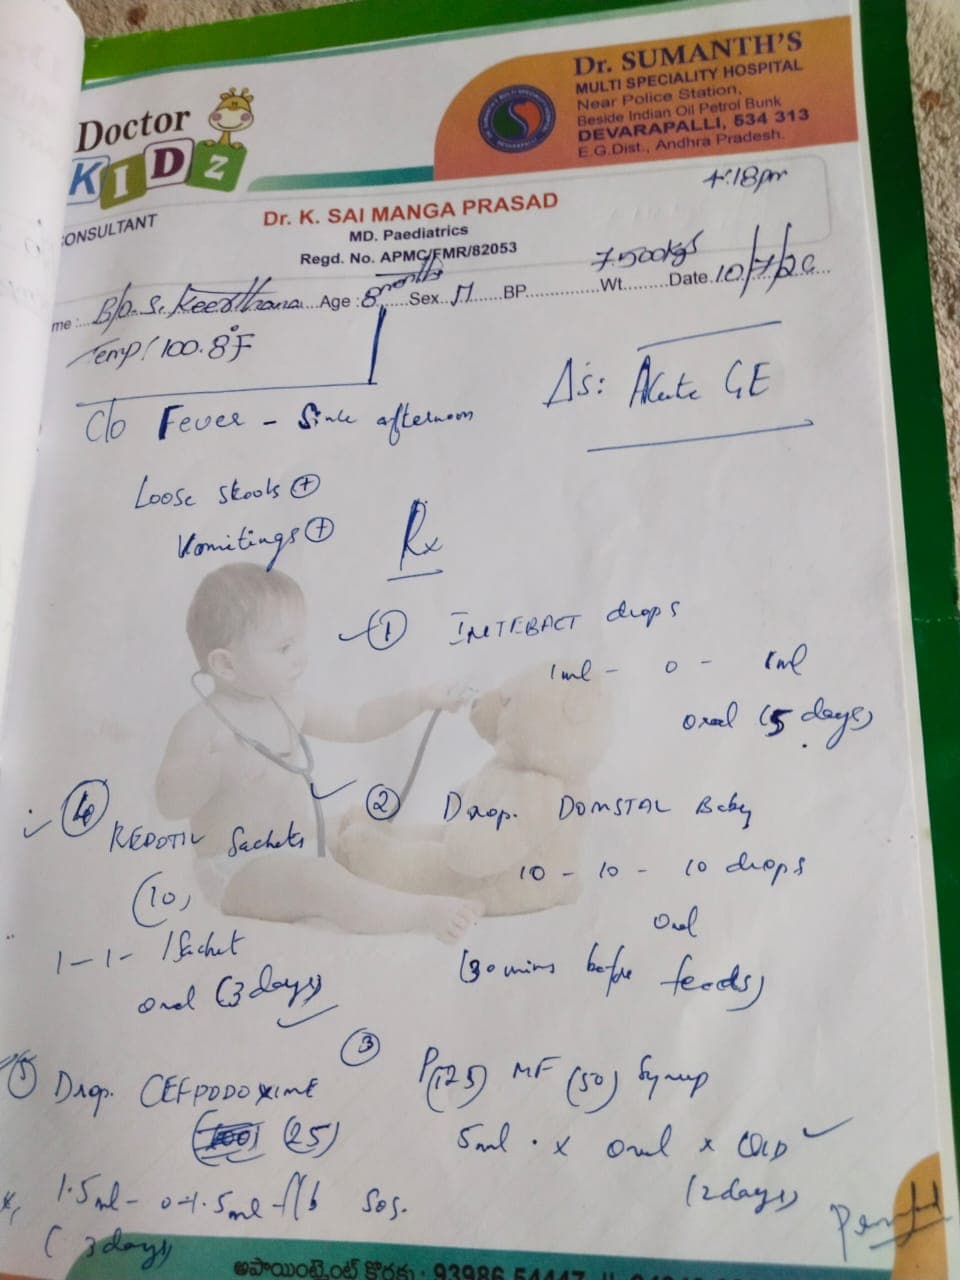 Doctor
KIDZ
Dr. SUMANTH'S
MULTI SPECIALITY HOSPITAL
Near Police Station,
Beside Indian Oil Petrol Bunk
DEVARAPALLI, 534 313
E.G.Dist., Andhra Pradesh.
4:18pm
CONSULTANT
Dr. K. SAI MANGA PRASAD
MD. Paediatrics
Regd. No. APMC/FMR/82053
me : B/o. S. Keerthana Age : 8 months Sex M BP Wt 7.500kgs Date 10/7/
Temp: 100.8°F
Δs: Acute GE
C/o Fever - Since afternoon
Loose stools (+)
Vomitings (+)
Rx
(1) INTEBACT drops
1ml - 0 - 1ml
oral (5 days)
(2) Drop. DOMSTAL Baby
10 - 10 - 10 drops
oral
(30 mins before feeds)
(3) P(125) MF (50) Syrup
5ml x oral x
(2days)
SOS.
(4) REDOTIL Sachets
(10)
1-1-1 Sachet
oral (3 days)
(5) Drop. CEFPODOXIME
(25)
1.5ml - 0 - 1.5ml
(3 days)
అపాయింట్మెంట్ కొరకు : 93986 54447